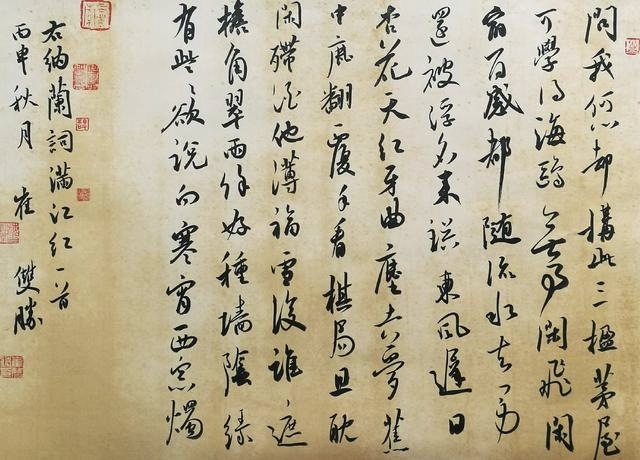 問我何心却構此三楹茅屋
可學得海鷗無事閑飛閑
宿百感都隨流水去一身
還被浮名束誤東風遲日
杏花天紅牙曲塵土夢蕉
中鹿翻覆手看棋局且耽
閑殢酒他薄福雪後誰遮
檐角翠雨餘好種墻陰綠
有些些欲說向寒宵西窗燭
右納蘭詞滿江紅一首
丙申秋月 崔雙勝